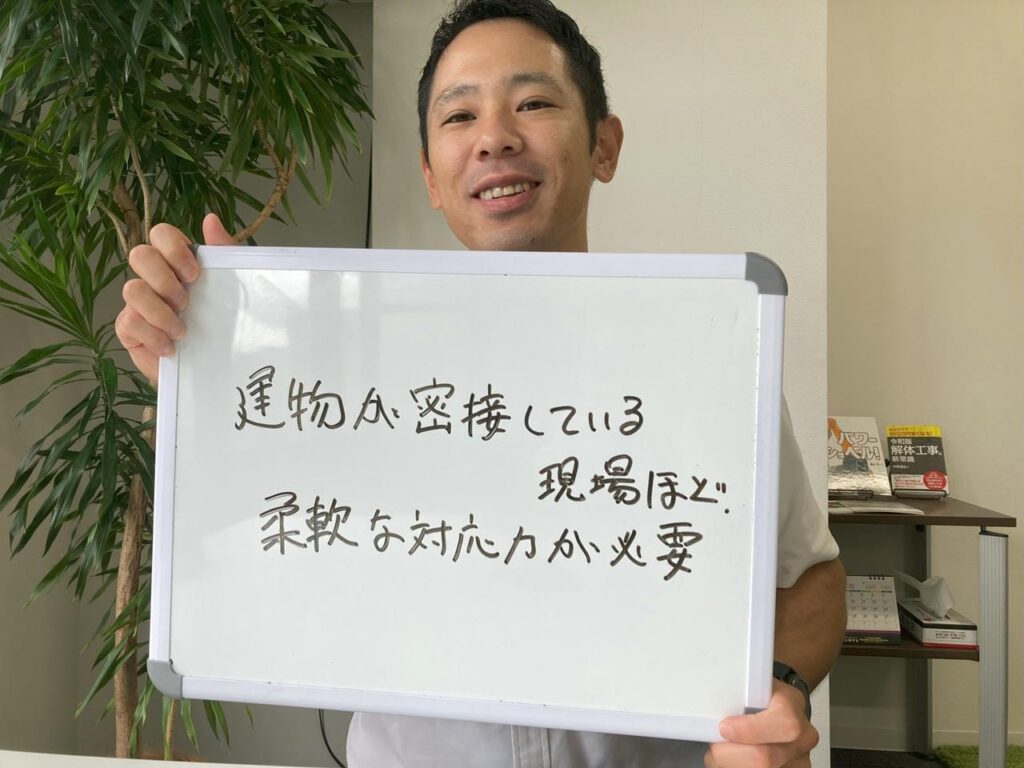 建物が密接している
現場ほど、
柔軟な対応力が必要
パワー
令和版
解体工事の
新常識